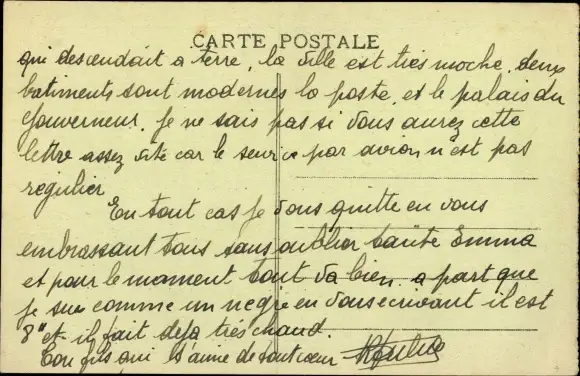 CARTE POSTALE
qui descendait a terre, la ville est très moche, deux
batiments sont modernes la poste, et le palais du
Gouverneur. Je ne sais pas si vous aurez cette
lettre assez vite car le service par avion n'est pas
regulier
En tout cas je vous quitte en vous
embrassant tous sans oublier tante Emma
et pour le moment tout va bien. a part que
je sue comme un negre en vous ecrivant il est
8" et il fait deja très chaud.
Ton fils qui t'aime de tout cœur